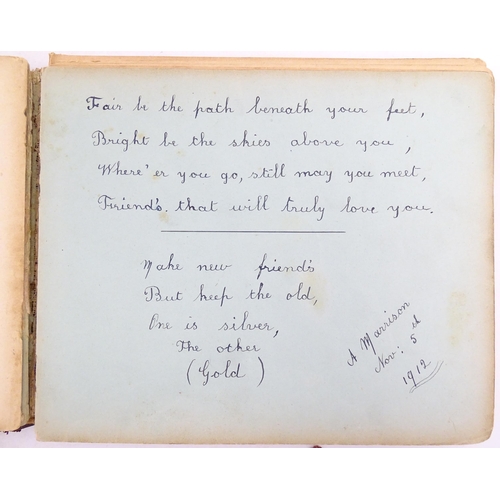 Fair be the path beneath your feet,
Bright be the skies above you,
Where'er you go, still may you meet,
Friend's. that will truly love you.
Make new friend's
But keep the old,
One is silver,
The other
(Gold)
A Marrison
Nov: 5th
1912